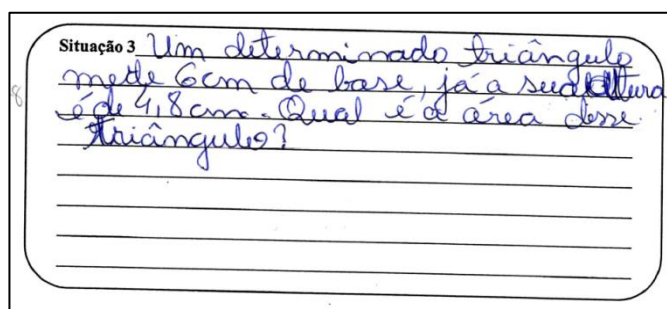 Situação 3 Um determinado triângulo
mede 6cm de base, já a sua altura
é de 4,8 cm. Qual é a área desse
triângulo?
8